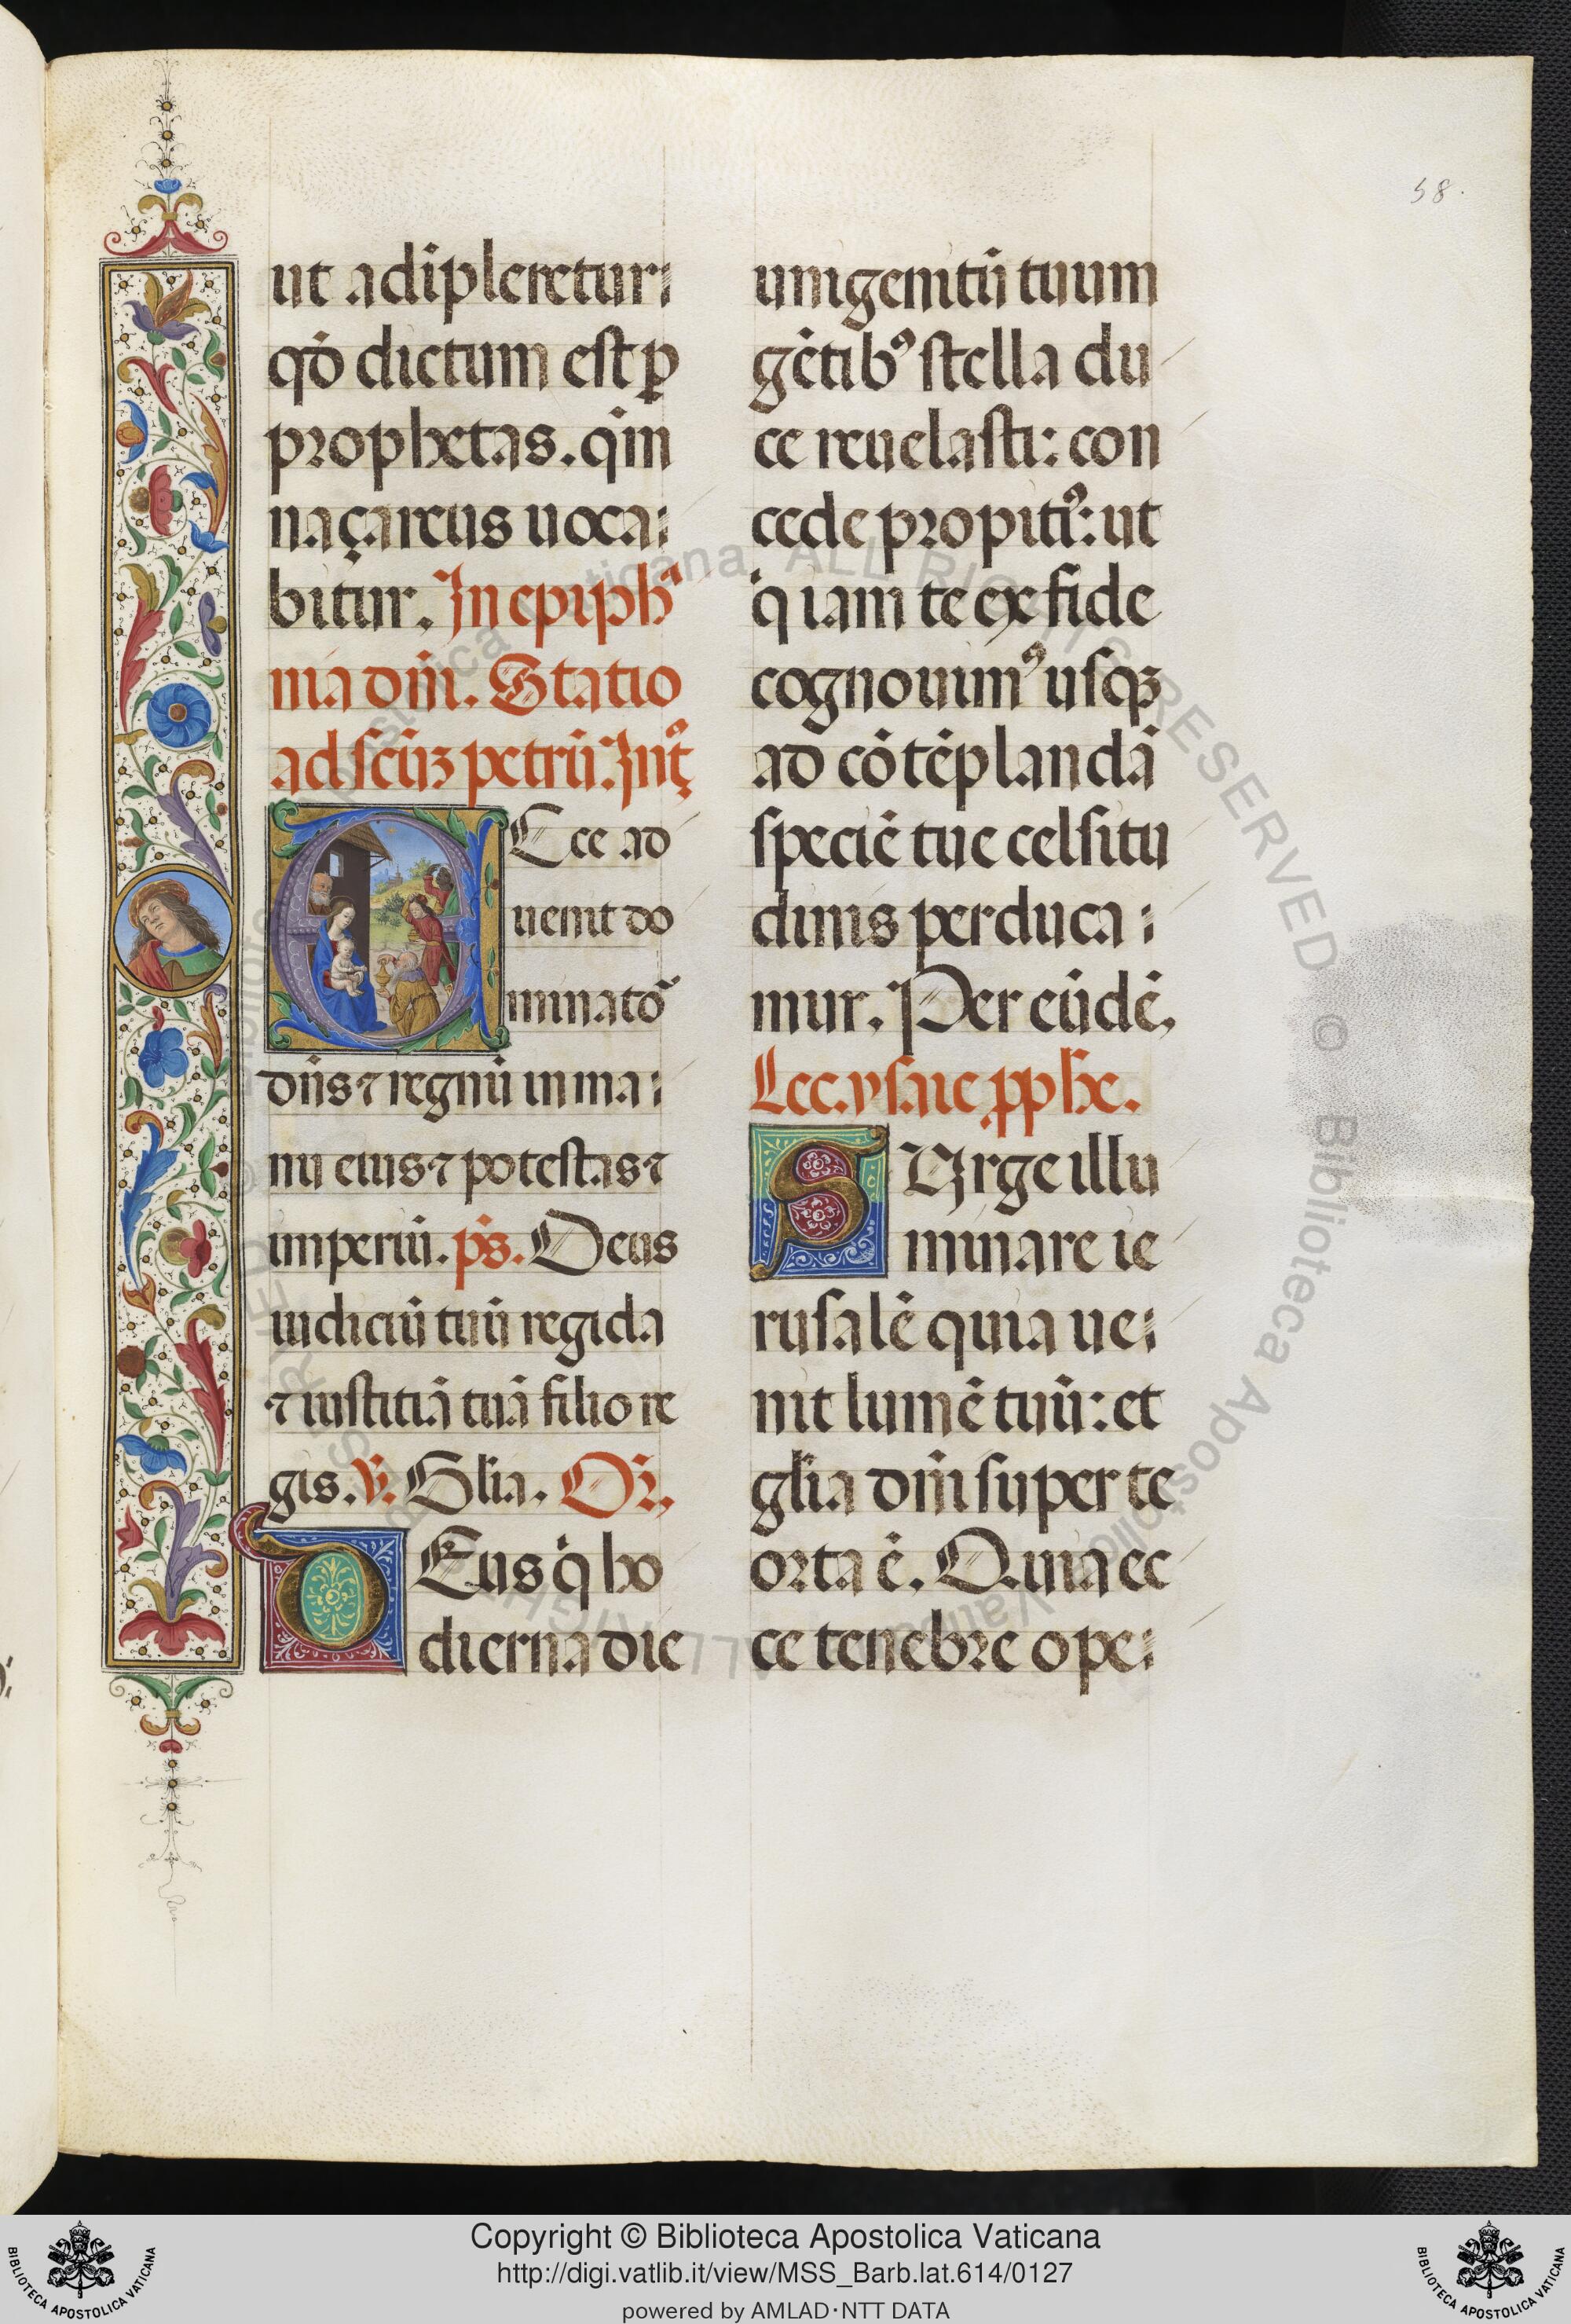 58.
ut adīpleretur
qđ dictum est ꝑ
prophetas. qm̄
naçareus uoca
bitur. In epiph
nia dn̄i. Statio
ad scūꝫ petrū. Int̄
Ecce ad
uenit do
minato
dn̄s ⁊ regnū in ma
nu eius ⁊ potestas ⁊
imperiū. p̄s. Deus
iudiciū tuū regi da
⁊ iustitiā tuā filio re
gis. ℣. Glia. Or̄.
Deus q̇ ho
dierna die
unigenitū tuum
gētibꝰ stella du
ce reuelasti: con
cede propitiꝰ: ut
q̇ iam te ex fide
cognouimꝰ usqꝫ
ad cōtēplandā
speciē tue celsitu
dinis perduca
mur. Per eūdē.
Lec. ysaie ꝓphe.
Surge illu
minare ie
rusalē quia ue
nit lumē tuū: et
glia dn̄i super te
orta ē. Quia ec
ce tenebre ope
Copyright © Biblioteca Apostolica Vaticana
http://digi.vatlib.it/view/MSS_Barb.lat.614/0127
powered by AMLAD·NTT DATA
BIBLIOTECA APOSTOLICA VATICANA
BIBLIOTECA APOSTOLICA VATICANA